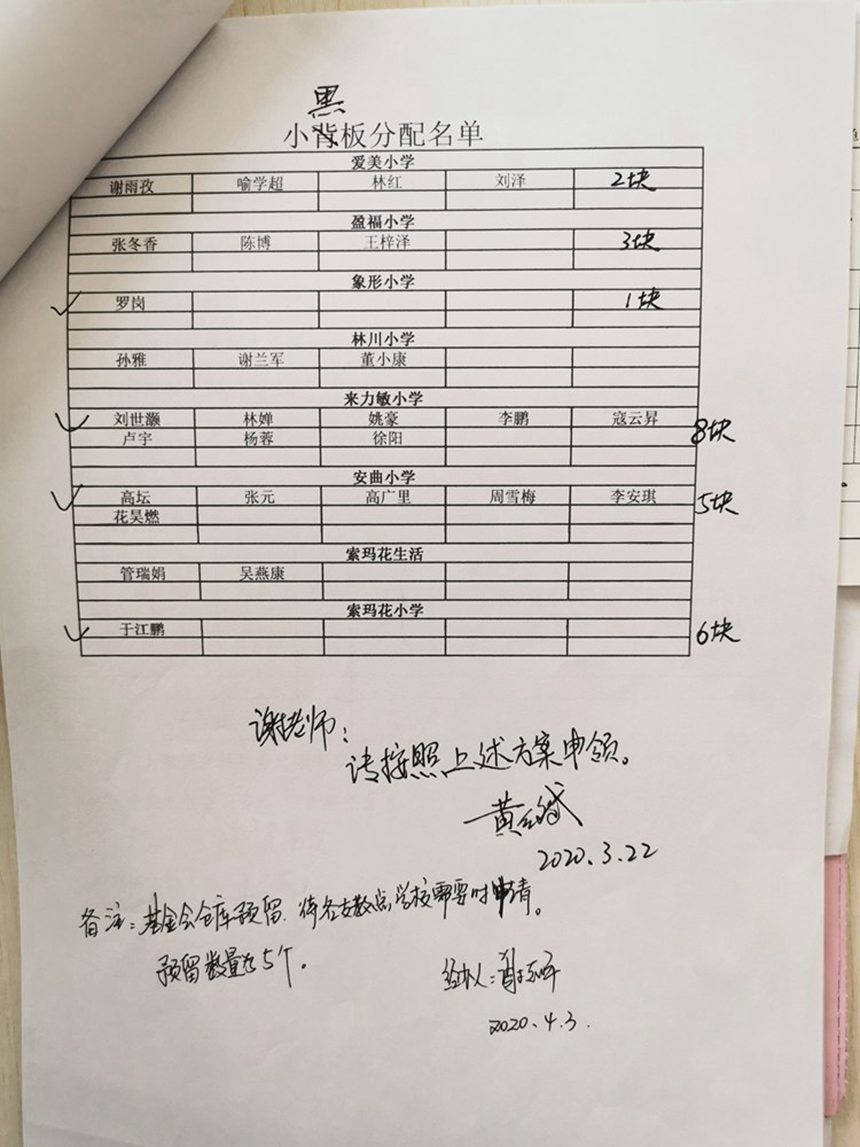 黑
小背板分配名单
爱美小学
谢雨孜 喻学超 林红 刘泽 2块
盈福小学
张冬香 陈博 王梓泽 3块
象形小学
罗岗 1块
林川小学
孙雅 谢兰军 董小康
来力敏小学
刘世灏 林婵 姚豪 李鹏 寇云昇
卢宇 杨蓉 徐阳 8块
安曲小学
高坛 张元 高广里 周雪梅 李安琪 5块
花昊燃
索玛花生活
管瑞娟 吴燕康
索玛花小学
于江鹏 6块
谢老师：
请按照上述方案申领。
黄
2020.3.22
备注：基金会仓库预留，待各支教点学校需要时申请。
预留数量为5个。
经办人：
2020.4.3.